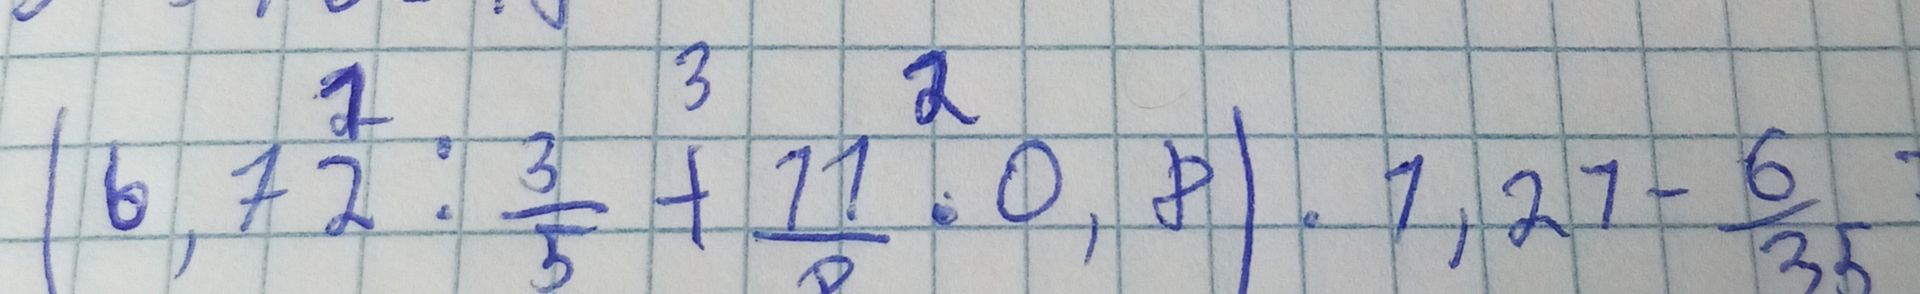 1 3 2
(6,72 : 3/5 + 11/8 · 0,8) · 1,21 - 6/35